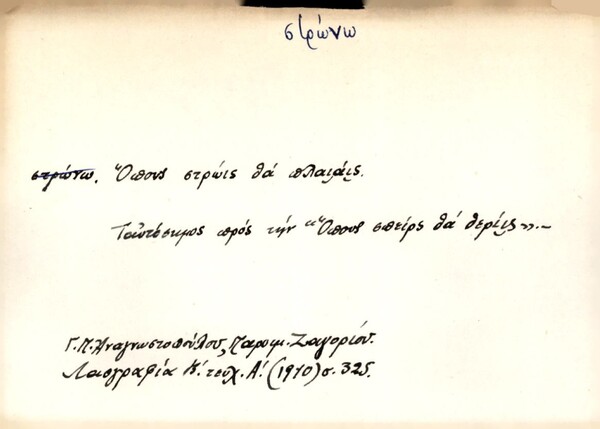 στρώνω
στρώνω. Ὅπους στρώις θά πλαιάῃς.
Ταὐτόσημος πρός τήν "Ὅπους σπείρς θά θερίῃς».-
Γ. Π. Ἀναγνωστοπούλου, Παροιμ. Ζαγορίου.
Λαογραφία Β΄. τευχ. Α΄. (1910) σ. 325.